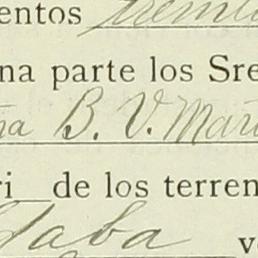 entos
na parte los Sre
na B. V. Mar
ri de los terren
daba ve